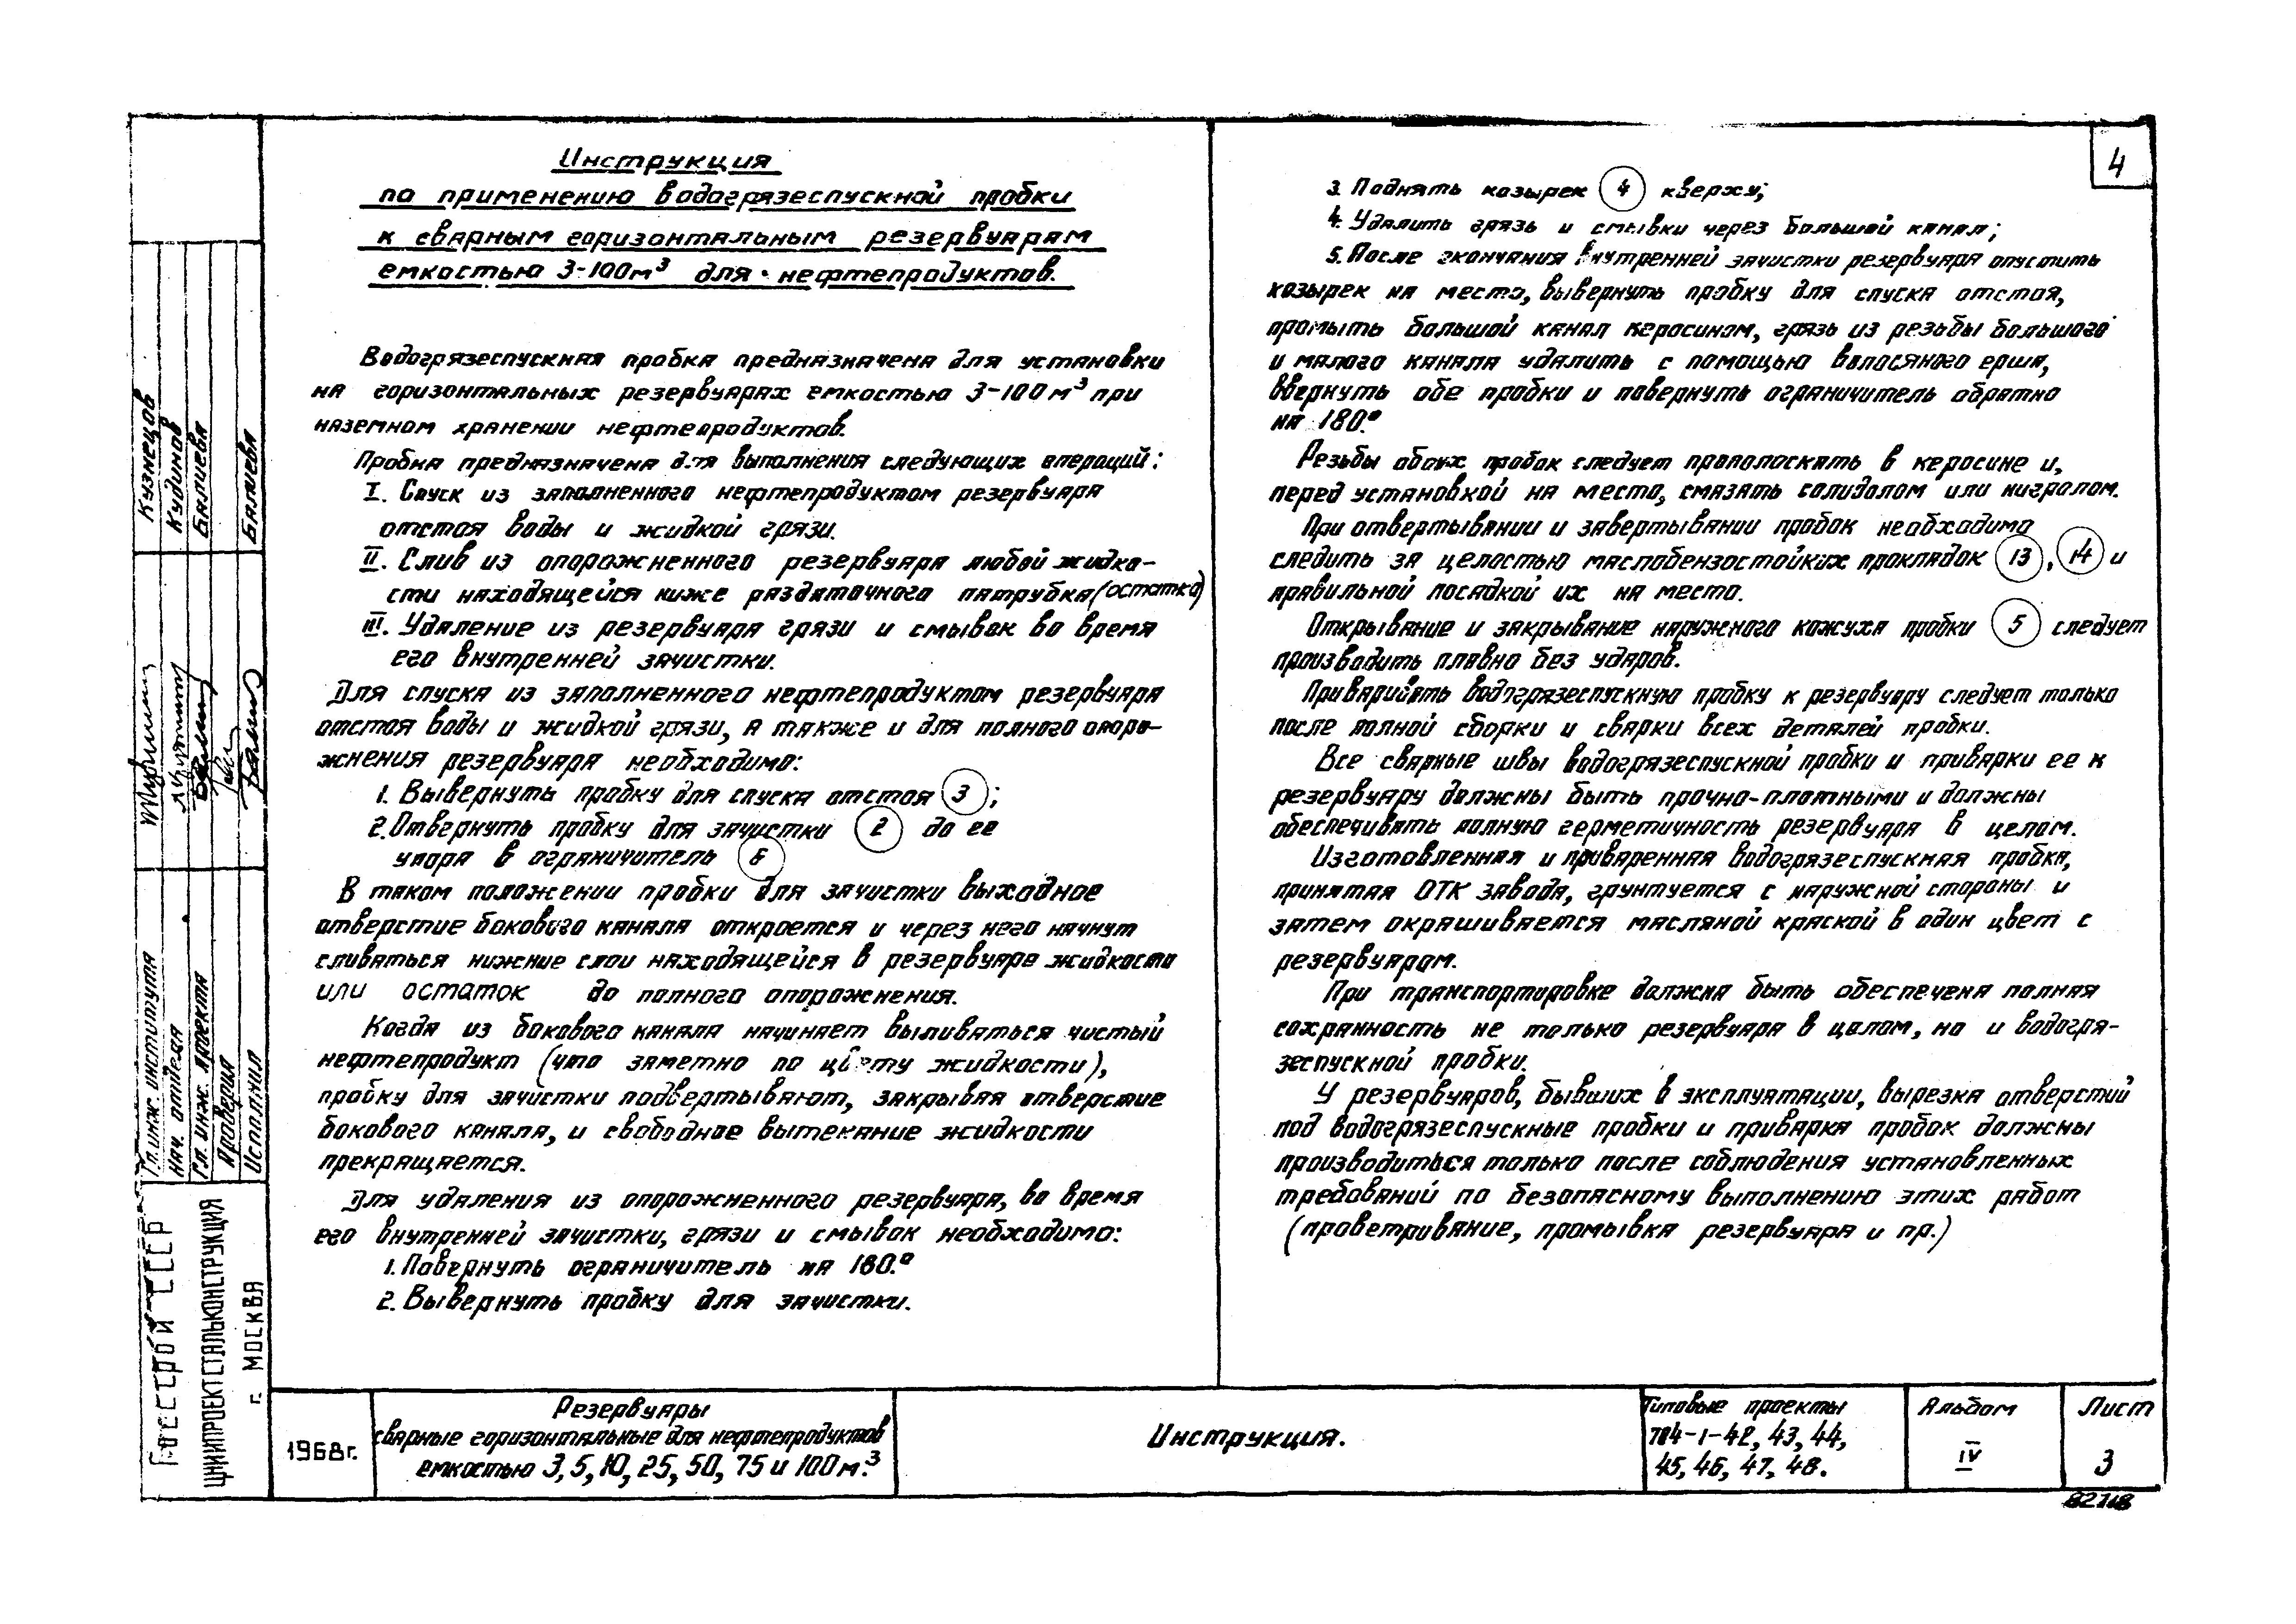 Инструкция
по применению водогрязеспускной пробки
к сварным горизонтальным резервуарам
емкостью 3-100м³ для нефтепродуктов.
Водогрязеспускная пробка предназначена для установки
на горизонтальных резервуарах емкостью 3-100м³ при
наземном хранении нефтепродуктов.
Пробка предназначена для выполнения следующих операций:
I. Спуск из заполненного нефтепродуктом резервуара
отстоя воды и жидкой грязи.
II. Слив из опорожненного резервуара любой жидко-
сти находящейся ниже раздаточного патрубка (остатка)
III. Удаление из резервуара грязи и смывок во время
его внутренней зачистки.
Для спуска из заполненного нефтепродуктом резервуара
отстоя воды и жидкой грязи, а также и для полного опоро-
жнения резервуара необходимо:
1. Вывернуть пробку для спуска отстоя 3;
2. Отвернуть пробку для зачистки 2 до ее
упора в ограничитель 6
В таком положении пробки для зачистки выходное
отверстие бокового канала откроется и через него начнут
сливаться нижние слои находящейся в резервуаре жидкости
или остаток до полного опорожнения.
Когда из бокового канала начинает выливаться чистый
нефтепродукт (что заметно по цвету жидкости),
пробку для зачистки подвертывают, закрывая отверстие
бокового канала, и свободное вытекание жидкости
прекращается.
Для удаления из опорожненного резервуара, во время
его внутренней зачистки, грязи и смывок необходимо:
1. Повернуть ограничитель на 180.°
2. Вывернуть пробку для зачистки.
4
3. Поднять козырек 4 кверху;
4. Удалить грязь и смывки через большой канал;
5. После окончания внутренней зачистки резервуара опустить
козырек на место, вывернуть пробку для спуска отстоя,
промыть большой канал керосином, грязь из резьбы большого
и малого канала удалить с помощью волосяного ерша,
ввернуть обе пробки и повернуть ограничитель обратно
на 180.°
Резьбы обоих пробок следует прополоскать в керосине и,
перед установкой на место, смазать солидолом или нигролом.
При отвертывании и завертывании пробок необходимо
следить за целостью маслобензостойких прокладок 13, 14 и
правильной посадкой их на место.
Открывание и закрывание наружного кожуха пробки 5 следует
производить плавно без ударов.
Приваривать водогрязеспускную пробку к резервуару следует только
после полной сборки и сварки всех деталей пробки.
Все сварные швы водогрязеспускной пробки и приварки ее к
резервуару должны быть прочно-плотными и должны
обеспечивать полную герметичность резервуара в целом.
Изготовленная и приваренная водогрязеспускная пробка,
принятая ОТК завода, грунтуется с наружной стороны и
затем окрашивается масляной краской в один цвет с
резервуаром.
При транспортировке должна быть обеспечена полная
сохранность не только резервуара в целом, но и водогря-
зеспускной пробки.
У резервуаров, бывших в эксплуатации, вырезка отверстий
под водогрязеспускные пробки и приварка пробок должны
производиться только после соблюдения установленных
требований по безопасному выполнению этих работ
(проветривание, промывка резервуара и пр.)
Гл. инж. института Кузнецов
Нач. отдела Кудинов
Гл. инж. проекта Балиева
Проверил
Исполнил Балиева
Госстрой СССР
ЦНИИПРОЕКТСТАЛЬКОНСТРУКЦИЯ
г. МОСКВА
1968г.
Резервуары
сварные горизонтальные для нефтепродуктов
емкостью 3,5,10,25,50,75 и 100м.³
Инструкция.
Типовые проекты
704-1-42, 43, 44,
45, 46, 47, 48.
Альбом
IV
Лист
3